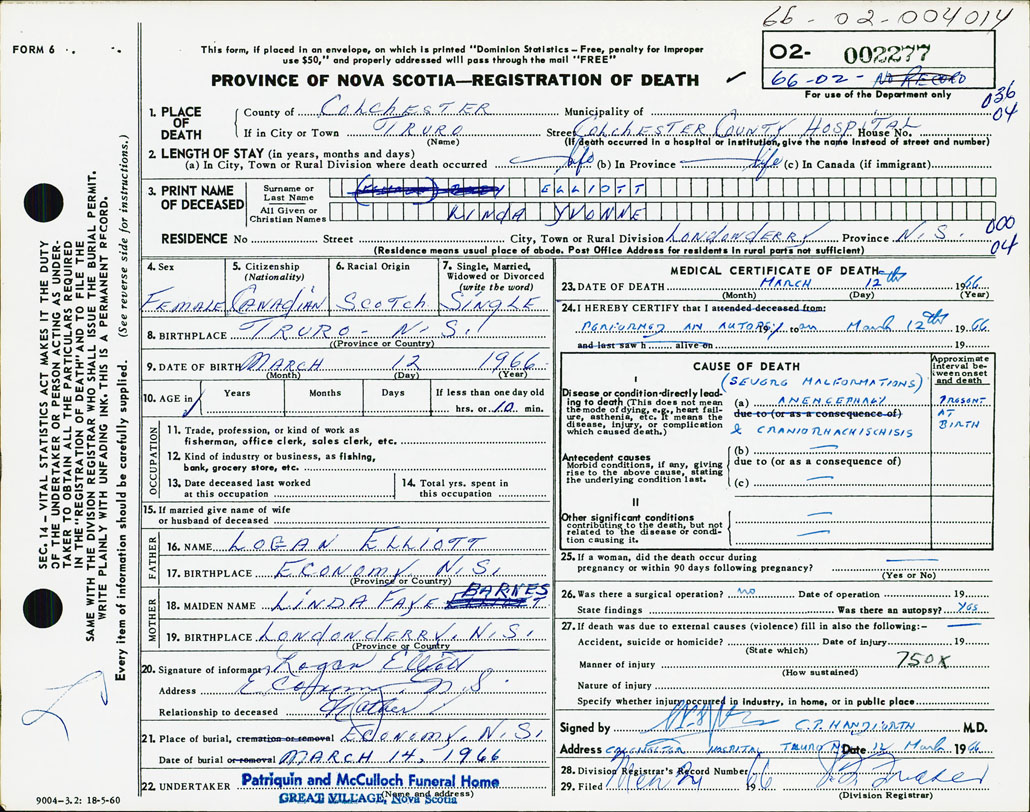 66-02-004014
FORM 6
This form, if placed in an envelope, on which is printed "Dominion Statistics—Free, penalty for improper
use $50," and properly addressed will pass through the mail "FREE"
O2- 002277
PROVINCE OF NOVA SCOTIA—REGISTRATION OF DEATH ✓
66-02- NO RECORD
For use of the Department only
036
04
SEC. 14 – VITAL STATISTICS ACT MAKES IT THE DUTY
OF THE UNDERTAKER OR PERSON ACTING AS UNDER-
TAKER TO OBTAIN ALL THE PARTICULARS REQUIRED
IN THE "REGISTRATION OF DEATH" AND TO FILE THE
SAME WITH THE DIVISION REGISTRAR WHO SHALL ISSUE THE BURIAL PERMIT.
WRITE PLAINLY WITH UNFADING INK. THIS IS A PERMANENT RECORD.
Every item of information should be carefully supplied. (See reverse side for instructions.)
1. PLACE OF DEATH
County of COLCHESTER Municipality of
If in City or Town TRURO Street COLCHESTER COUNTY HOSPITAL House No.
(Name) (If death occurred in a hospital or institution, give the name instead of street and number)
2. LENGTH OF STAY (in years, months and days)
(a) In City, Town or Rural Division where death occurred life (b) In Province life (c) In Canada (if immigrant)
3. PRINT NAME OF DECEASED
Surname or Last Name ELLIOTT
All Given or Christian Names LINDA YVONNE
RESIDENCE No Street City, Town or Rural Division LONDONDERRY Province N.S.
(Residence means usual place of abode. Post Office Address for residents in rural parts not sufficient)
000
04
4. Sex FEMALE
5. Citizenship (Nationality) CANADIAN
6. Racial Origin SCOTCH
7. Single, Married, Widowed or Divorced (write the word) SINGLE
8. BIRTHPLACE TRURO - N.S.
(Province or Country)
9. DATE OF BIRTH MARCH 12 1966
(Month) (Day) (Year)
10. AGE in Years Months Days If less than one day old
hrs. or 10 min.
OCCUPATION
11. Trade, profession, or kind of work as
fisherman, office clerk, sales clerk, etc.
12. Kind of industry or business, as fishing,
bank, grocery store, etc.
13. Date deceased last worked
at this occupation
14. Total yrs. spent in
this occupation
15. If married give name of wife
or husband of deceased
FATHER
16. NAME LOGAN ELLIOTT
17. BIRTHPLACE ECONOMY N.S.
(Province or Country)
MOTHER
18. MAIDEN NAME LINDA FAYE BARNES
19. BIRTHPLACE LONDONDERRY, N.S.
(Province or Country)
20. Signature of informant Logan Elliott
Address Economy, N.S.
Relationship to deceased Father
21. Place of burial, cremation or removal ECONOMY, N.S.
Date of burial or removal MARCH 14, 1966
22. UNDERTAKER Patriquin and McCulloch Funeral Home
(Name and address)
GREAT VILLAGE, Nova Scotia
9004-3.2: 18-5-60
MEDICAL CERTIFICATE OF DEATH
23. DATE OF DEATH MARCH 12th 1966
(Month) (Day) (Year)
24. I HEREBY CERTIFY that I attended deceased from:
PERFORMED AN AUTOPSY to on March 12th 1966
and last saw h alive on 19
CAUSE OF DEATH
Approximate interval between onset and death
I
(SEVERE MALFORMATIONS)
Disease or condition directly leading to death (This does not mean the mode of dying, e.g., heart failure, asthenia, etc. It means the disease, injury, or complication which caused death.)
(a) ANENCEPHALY PRESENT AT BIRTH
due to (or as a consequence of)
& CRANIORHACHISCHISIS
Antecedent causes
Morbid conditions, if any, giving rise to the above cause, stating the underlying condition last.
(b) —
due to (or as a consequence of)
(c) —
II
Other significant conditions
contributing to the death, but not related to the disease or condition causing it.
25. If a woman, did the death occur during
pregnancy or within 90 days following pregnancy? —
(Yes or No)
26. Was there a surgical operation? no Date of operation 19
State findings Was there an autopsy? Yes
27. If death was due to external causes (violence) fill in also the following:– —
Accident, suicide or homicide? Date of injury 19
(State which)
Manner of injury 750X
(How sustained)
Nature of injury
Specify whether injury occurred in industry, in home, or in public place
Signed by C.P. HANDFORTH M.D.
Address COLCHESTER HOSPITAL TRURO N Date 12 March 1966
28. Division Registrar's Record Number
29. Filed 1966
(Division Registrar)